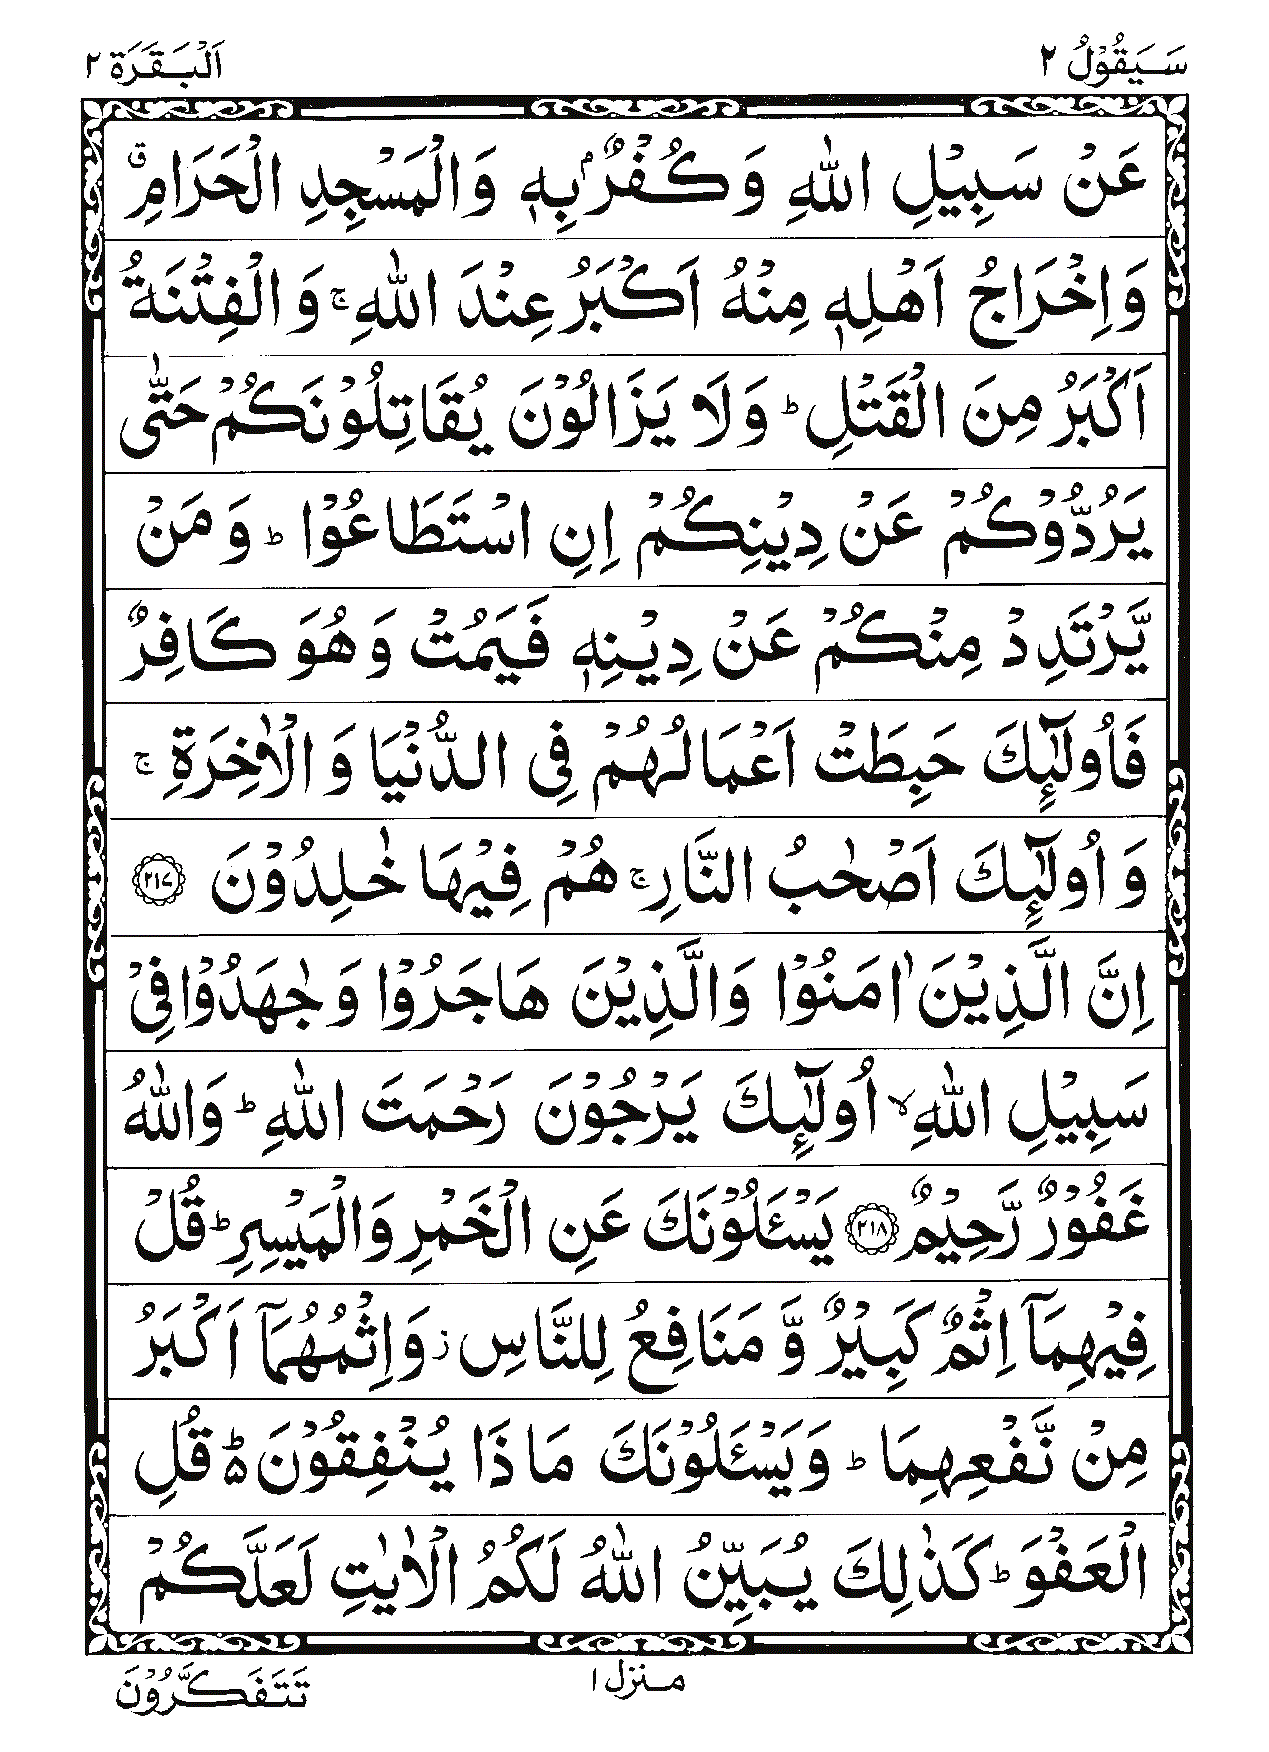 سَيَقُوْلُ ٢
اَلْبَقَرَة ٢
عَنْ سَبِيْلِ اللّٰهِ وَ كُفْرٌۢ بِهٖ وَالْمَسْجِدِ الْحَرَامِ ۗ
وَاِخْرَاجُ اَهْلِهٖ مِنْهُ اَكْبَرُ عِنْدَ اللّٰهِ ۚ وَ الْفِتْنَةُ
اَكْبَرُ مِنَ الْقَتْلِ ؕ وَلَا يَزَالُوْنَ يُقَاتِلُوْنَكُمْ حَتّٰى
يَرُدُّوْكُمْ عَنْ دِيْنِكُمْ اِنِ اسْتَطَاعُوْا ؕ وَ مَنْ
يَّرْتَدِدْ مِنْكُمْ عَنْ دِيْنِهٖ فَيَمُتْ وَ هُوَ كَافِرٌ
فَاُولٰٓئِكَ حَبِطَتْ اَعْمَالُهُمْ فِى الدُّنْيَا وَ الْاٰخِرَةِ ۚ
وَ اُولٰٓئِكَ اَصْحٰبُ النَّارِ ۚ هُمْ فِيْهَا خٰلِدُوْنَ ﴿٢١٧﴾
اِنَّ الَّذِيْنَ اٰمَنُوْا وَالَّذِيْنَ هَاجَرُوْا وَ جٰهَدُوْا فِىْ
سَبِيْلِ اللّٰهِ ۙ اُولٰٓئِكَ يَرْجُوْنَ رَحْمَتَ اللّٰهِ ؕ وَاللّٰهُ
غَفُوْرٌ رَّحِيْمٌ ﴿٢١٨﴾ يَسْـَٔلُوْنَكَ عَنِ الْخَمْرِ وَالْمَيْسِرِ ؕ قُلْ
فِيْهِمَآ اِثْمٌ كَبِيْرٌ وَّ مَنَافِعُ لِلنَّاسِ ز وَاِثْمُهُمَآ اَكْبَرُ
مِنْ نَّفْعِهِمَا ؕ وَيَسْـَٔلُوْنَكَ مَا ذَا يُنْفِقُوْنَ ؕ۵ قُلِ
الْعَفْوَ ؕ كَذٰلِكَ يُبَيِّنُ اللّٰهُ لَكُمُ الْاٰيٰتِ لَعَلَّكُمْ
منزل ١
تَتَفَكَّرُوْنَ